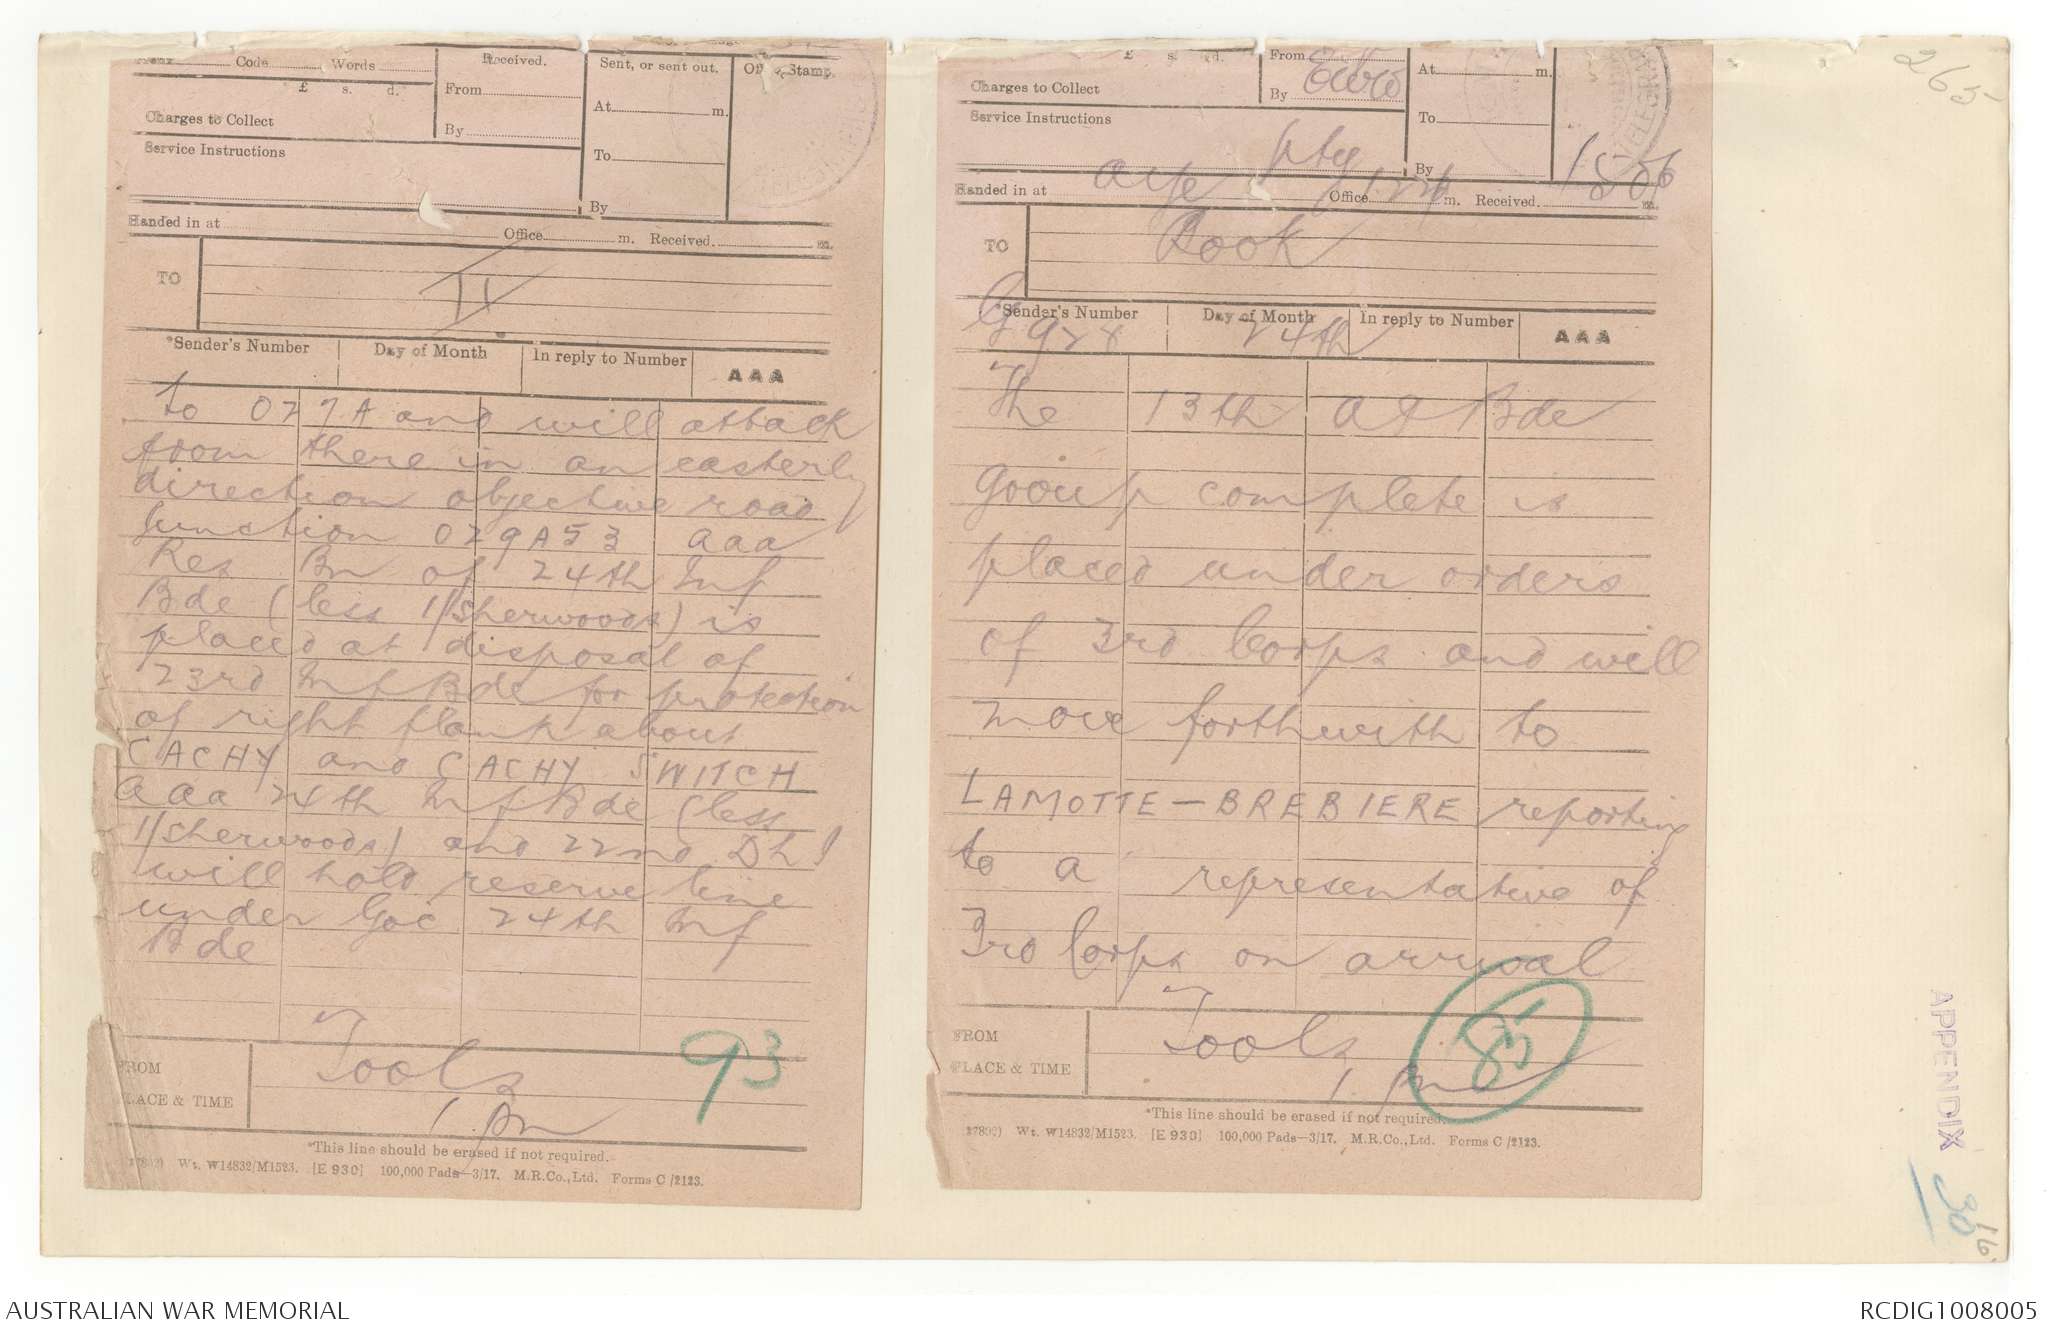 Code Words
Received.
Sent, or sent out.
Office Stamp.
£ s. d.
From
At m.
Charges to Collect
By
Service Instructions
To
By
Handed in at Office m. Received. m.
TO
II
*Sender's Number
Day of Month
In reply to Number
AAA
to O27A and will attack
from there in an easterly
direction objective road
junction O29A53 aaa
Res Bn of 24th Inf
Bde (less 1/Sherwoods) is
placed at disposal of
23rd Inf Bde for protection
of right flank about
CACHY and CACHY SWITCH
aaa 24th Inf Bde (less
1/Sherwoods) and 22nd DLI
will hold reserve line
under Goc 24th Inf
Bde
FROM
PLACE & TIME
Tools
1. pm
93
*This line should be erased if not required.
Wt. W14832/M1523. [E 930] 100,000 Pads—3/17. M.R.Co., Ltd. Forms C/2123.
£ s. d.
From
At m.
Charges to Collect
By
To
Service Instructions
pty
By
Handed in at Office m. Received. m.
TO
Rook
*Sender's Number
Day of Month
In reply to Number
AAA
G 928
24th
The 13th a I Bde
group complete is
placed under orders
of 3rd Corps and will
move forthwith to
LAMOTTE-BREBIERE reporting
to a representative of
3rd Corps on arrival
FROM
PLACE & TIME
Tools
1. pm
85
*This line should be erased if not required.
Wt. W14832/M1523. [E 930] 100,000 Pads—3/17. M.R.Co., Ltd. Forms C/2123.
265
APPENDIX
30
16.
AUSTRALIAN WAR MEMORIAL
RCDIG1008005